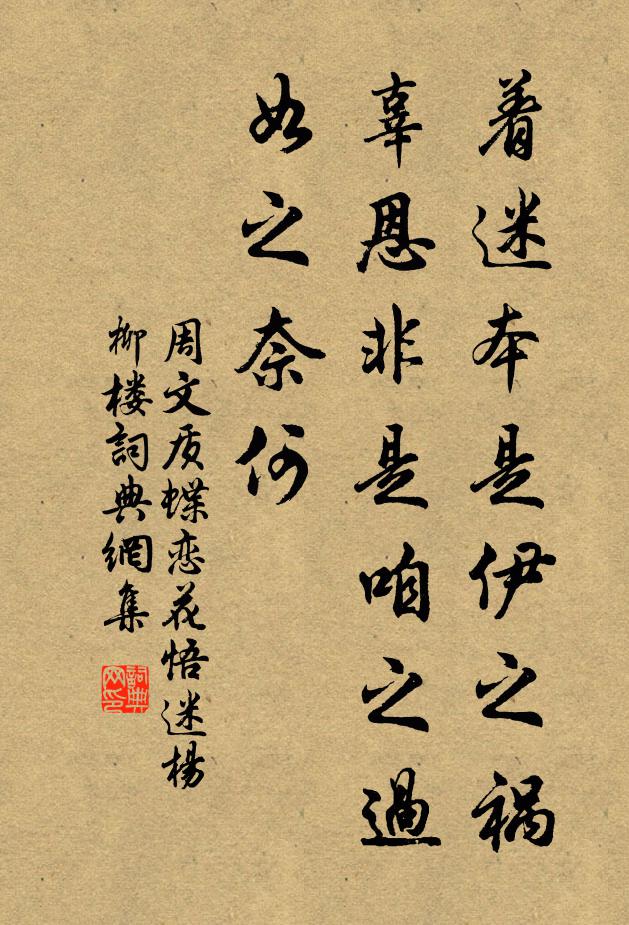 着迷本是伊之祸
辜恩非是咱之過
如之奈何
周文质蝶恋花悟迷楊
柳楼詞典網集
詞典网印